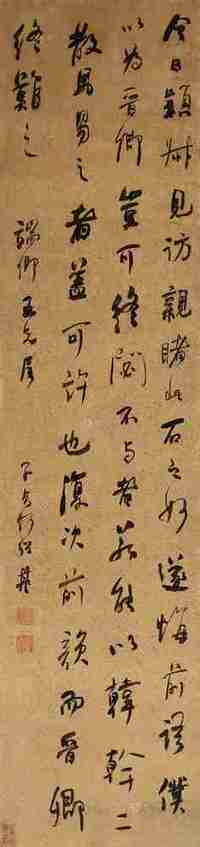 今日穎叔見訪親睹此石之妙遂悔前語僕
以為晉卿豈可終閟不與者若能以韓幹二
散馬易之者蓋可許也復次前韻而晉卿
終難之 端卿五兄屬 子貞何紹基